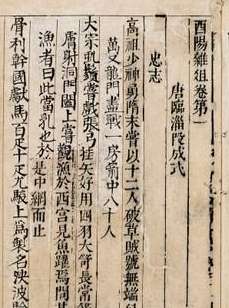 酉陽雜俎卷第一
唐臨淄段成式
忠志
高祖少神勇隋末嘗以十二人破草賊號無端
萬又龍門盡戰一房箭中八十人
太宗虬鬚嘗戲張弓挂矢好用四羽大笴長常箭
膚射洞門闔上嘗觀漁於西宮見魚躍焉問其
漁者曰此當乳也於是中網而止
骨利幹國獻馬百疋十疋尤駿上為製名決波